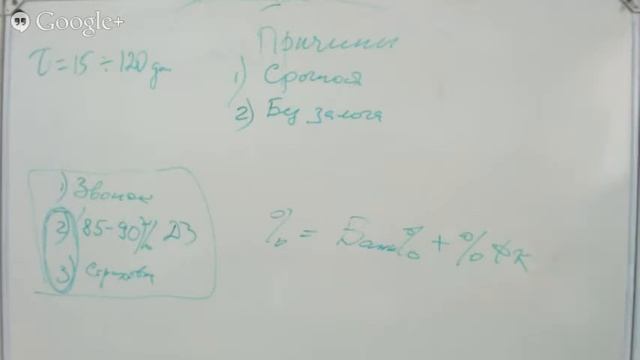 Google+
Причины
τ = 15 ÷ 120 дн
1) Срочная
2) Без залога
1) Звонок
2) 85-90% ДЗ
3) Страховка
% = Банк% + % ФК